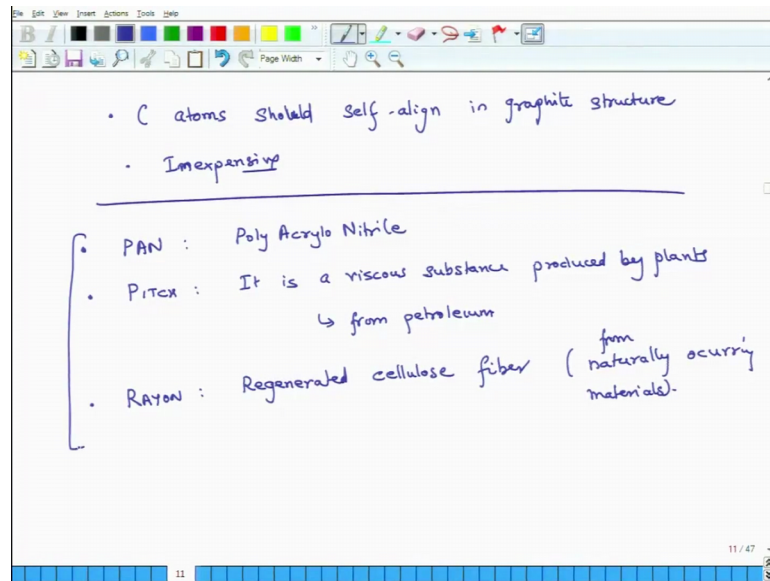 File Edit View Insert Actions Tools Help
B I
Page Width
• C atoms should self-align in graphite structure
• Imexpensive
• PAN : Poly Acrylo Nitrile
• PITCH : It is a viscous substance produced by plants
↳ from petroleum
• RAYON : Regenerated cellulose fiber ( from naturally ocurring
materials).
11 / 47
11